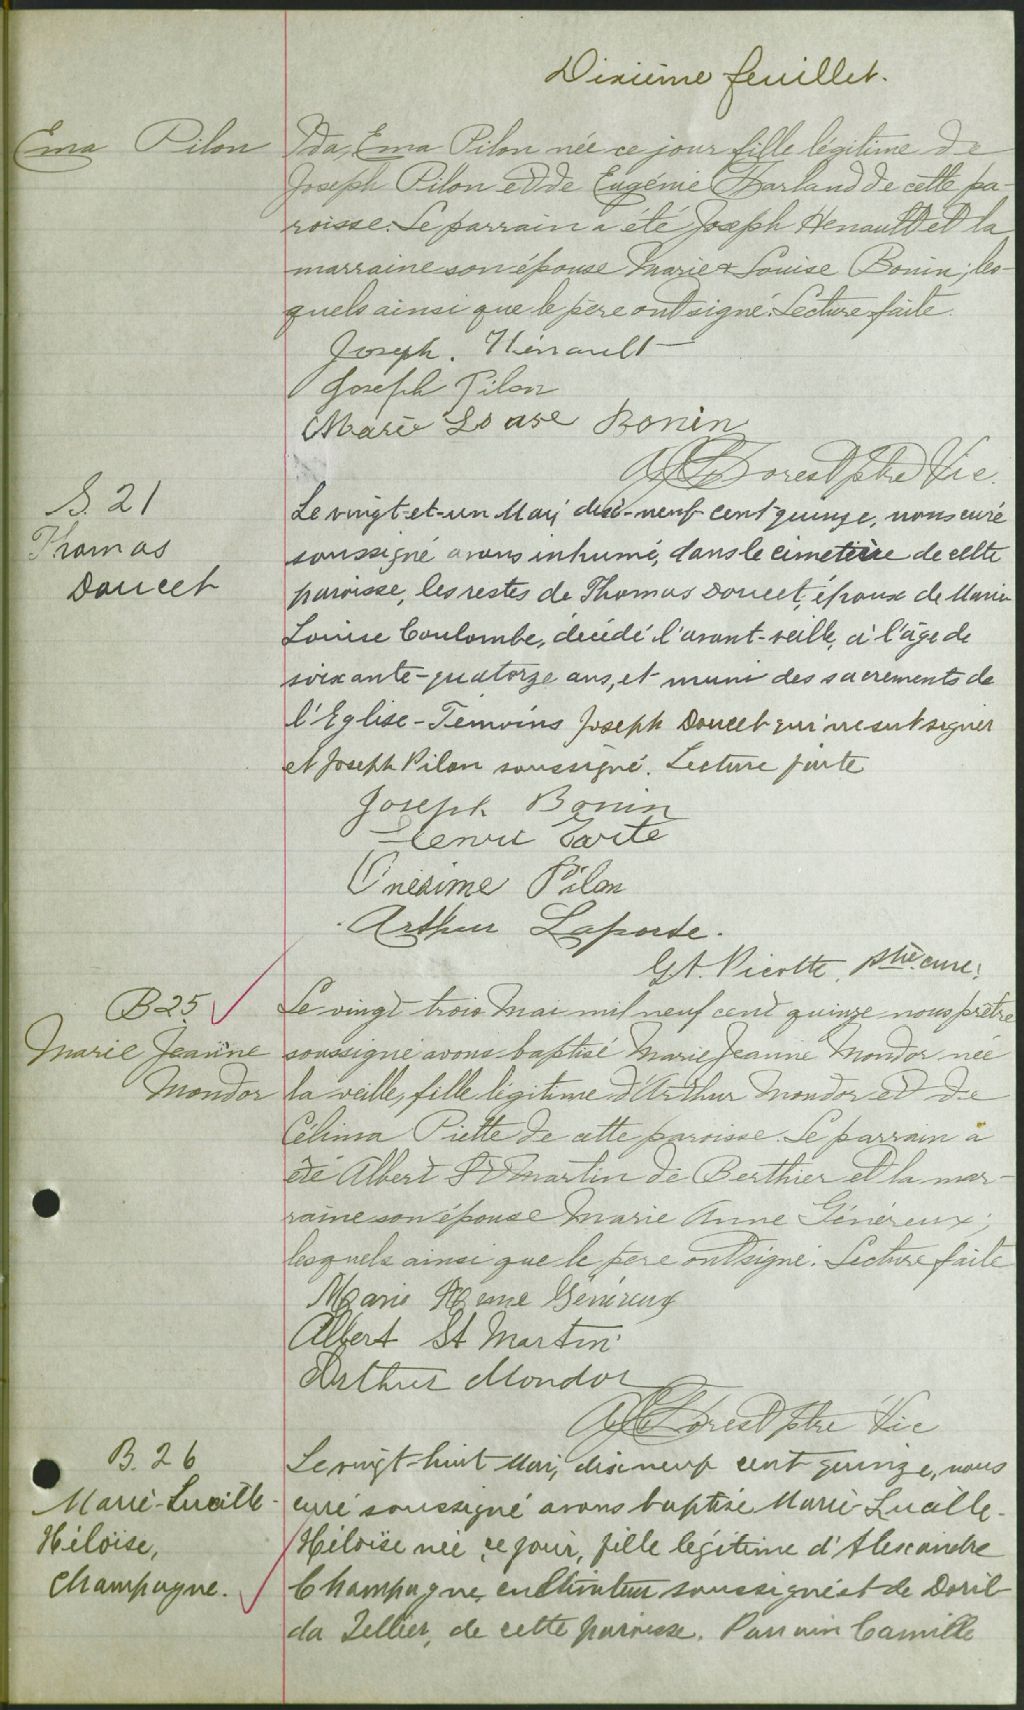 Dixième feuillet.
Ema Pilon
Ida, Ema Pilon née ce jour fille légitime de
Joseph Pilon et de Eugénie Charland de cette pa-
roisse. Le parrain a été Joseph Henault et la
marraine son épouse Marie Louise Bonin; les-
quels ainsi que le père ont signé. Lecture faite.
Joseph. Hénault
Joseph Pilon
Marie Louise Bonin
Dorest ptre Vic.
S. 21
Thomas
Doucet
Le vingt-et-un Mai, dix-neuf cent quinze, nous curé
soussigné avons inhumé, dans le cimetière de cette
paroisse, les restes de Thomas Doucet, époux de Marie
Louise Coulombe, décédé l'avant-veille, à l'âge de
soixante-quatorze ans, et muni des sacrements de
l'Eglise - Témoins Joseph Doucet qui ne sut signer
et Joseph Pilon soussigné. Lecture faite
Joseph Bonin
Henri Tarte
Onésime Pilon
Arthur Laporte.
Picotte, ptre curé.
B 25
Marie Jeanne
Mondor
Le vingt trois Mai mil neuf cent quinze nous prêtre
soussigné avons baptisé Marie Jeanne Mondor née
la veille, fille légitime d'Arthur Mondor et de
Célima Piette de cette paroisse. Le parrain a
été Albert St Martin de Berthier et la mar-
raine son épouse Marie Anne Généreux;
lesquels ainsi que le père ont signé. Lecture faite
Marie Anne Généreux
Albert St Martin
Arthur Mondor
Dorest ptre Vic
B. 26
Marie-Lucille-
Héloïse,
Champagne.
Le vingt-huit Mai, dix neuf cent quinze, nous
curé soussigné avons baptisé Marie Lucille-
Héloïse née ce jour, fille légitime d'Alexandre
Champagne, cultivateur soussigné et de Doril-
da Tellier, de cette paroisse. Parrain Camille